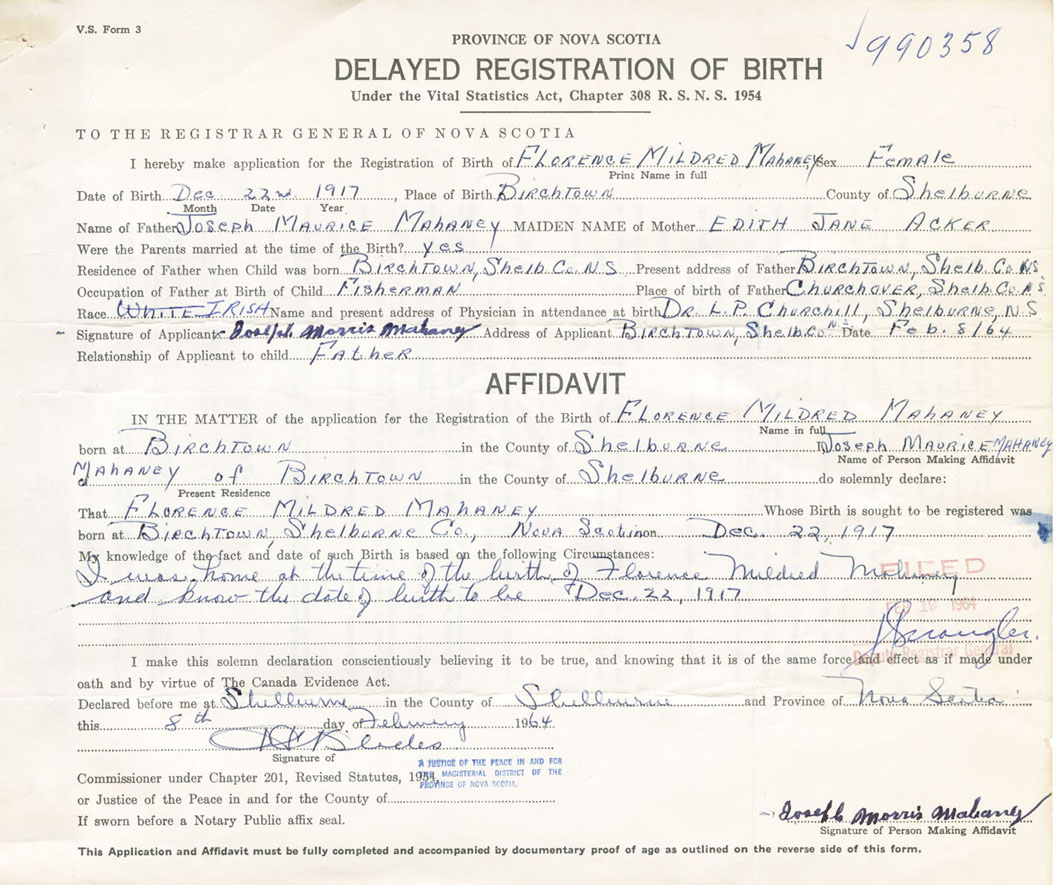 V.S. Form 3
990358
PROVINCE OF NOVA SCOTIA
DELAYED REGISTRATION OF BIRTH
Under the Vital Statistics Act, Chapter 308 R. S. N. S. 1954
TO THE REGISTRAR GENERAL OF NOVA SCOTIA
I hereby make application for the Registration of Birth of FLORENCE MILDRED MAHANEY Sex Female
Print Name in full
Date of Birth Dec 22nd 1917, Place of Birth BIRCHTOWN County of Shelburne
Month Date Year
Name of Father Joseph MAURICE MAHANEY MAIDEN NAME of Mother EDITH JANE ACKER
Were the Parents married at the time of the Birth? yes
Residence of Father when Child was born BIRCHTOWN, Shelb. Co. N.S Present address of Father BIRCHTOWN, Shelb. Co. N.S.
Occupation of Father at Birth of Child FISHERMAN Place of birth of Father CHURCHOVER, Shelb. Co. N.S.
Race WHITE-IRISH Name and present address of Physician in attendance at birth DR. L. P. Churchill, Shelburne, N.S
Signature of Applicant Joseph Morris Mahaney Address of Applicant BIRCHTOWN, Shelb. Co N.S. Date Feb. 8/64
Relationship of Applicant to child FATHER
AFFIDAVIT
IN THE MATTER of the application for the Registration of the Birth of FLORENCE MILDRED MAHANEY
Name in full
born at BIRCHTOWN in the County of Shelburne Joseph MAURICE MAHANEY
Name of Person Making Affidavit
MAHANEY of BIRCHTOWN in the County of Shelburne do solemnly declare:
Present Residence
That FLORENCE MILDRED MAHANEY Whose Birth is sought to be registered was
born at BIRCHTOWN, Shelburne Co., Nova Scotia on Dec. 22, 1917
My knowledge of the fact and date of such Birth is based on the following Circumstances:
I was home at the time of the birth of Florence Mildred Mahaney
and know the date of birth to be Dec. 22, 1917
FILED
FEB 19 1964
Deputy Registrar General
I make this solemn declaration conscientiously believing it to be true, and knowing that it is of the same force and effect as if made under
oath and by virtue of The Canada Evidence Act.
Declared before me at Shelburne in the County of Shelburne and Province of Nova Scotia
this 8th day of February 1964
Signature of
A JUSTICE OF THE PEACE IN AND FOR
THE MAGISTERIAL DISTRICT OF THE
PROVINCE OF NOVA SCOTIA.
Commissioner under Chapter 201, Revised Statutes, 1954,
or Justice of the Peace in and for the County of
If sworn before a Notary Public affix seal.
Joseph Morris Mahaney
Signature of Person Making Affidavit
This Application and Affidavit must be fully completed and accompanied by documentary proof of age as outlined on the reverse side of this form.